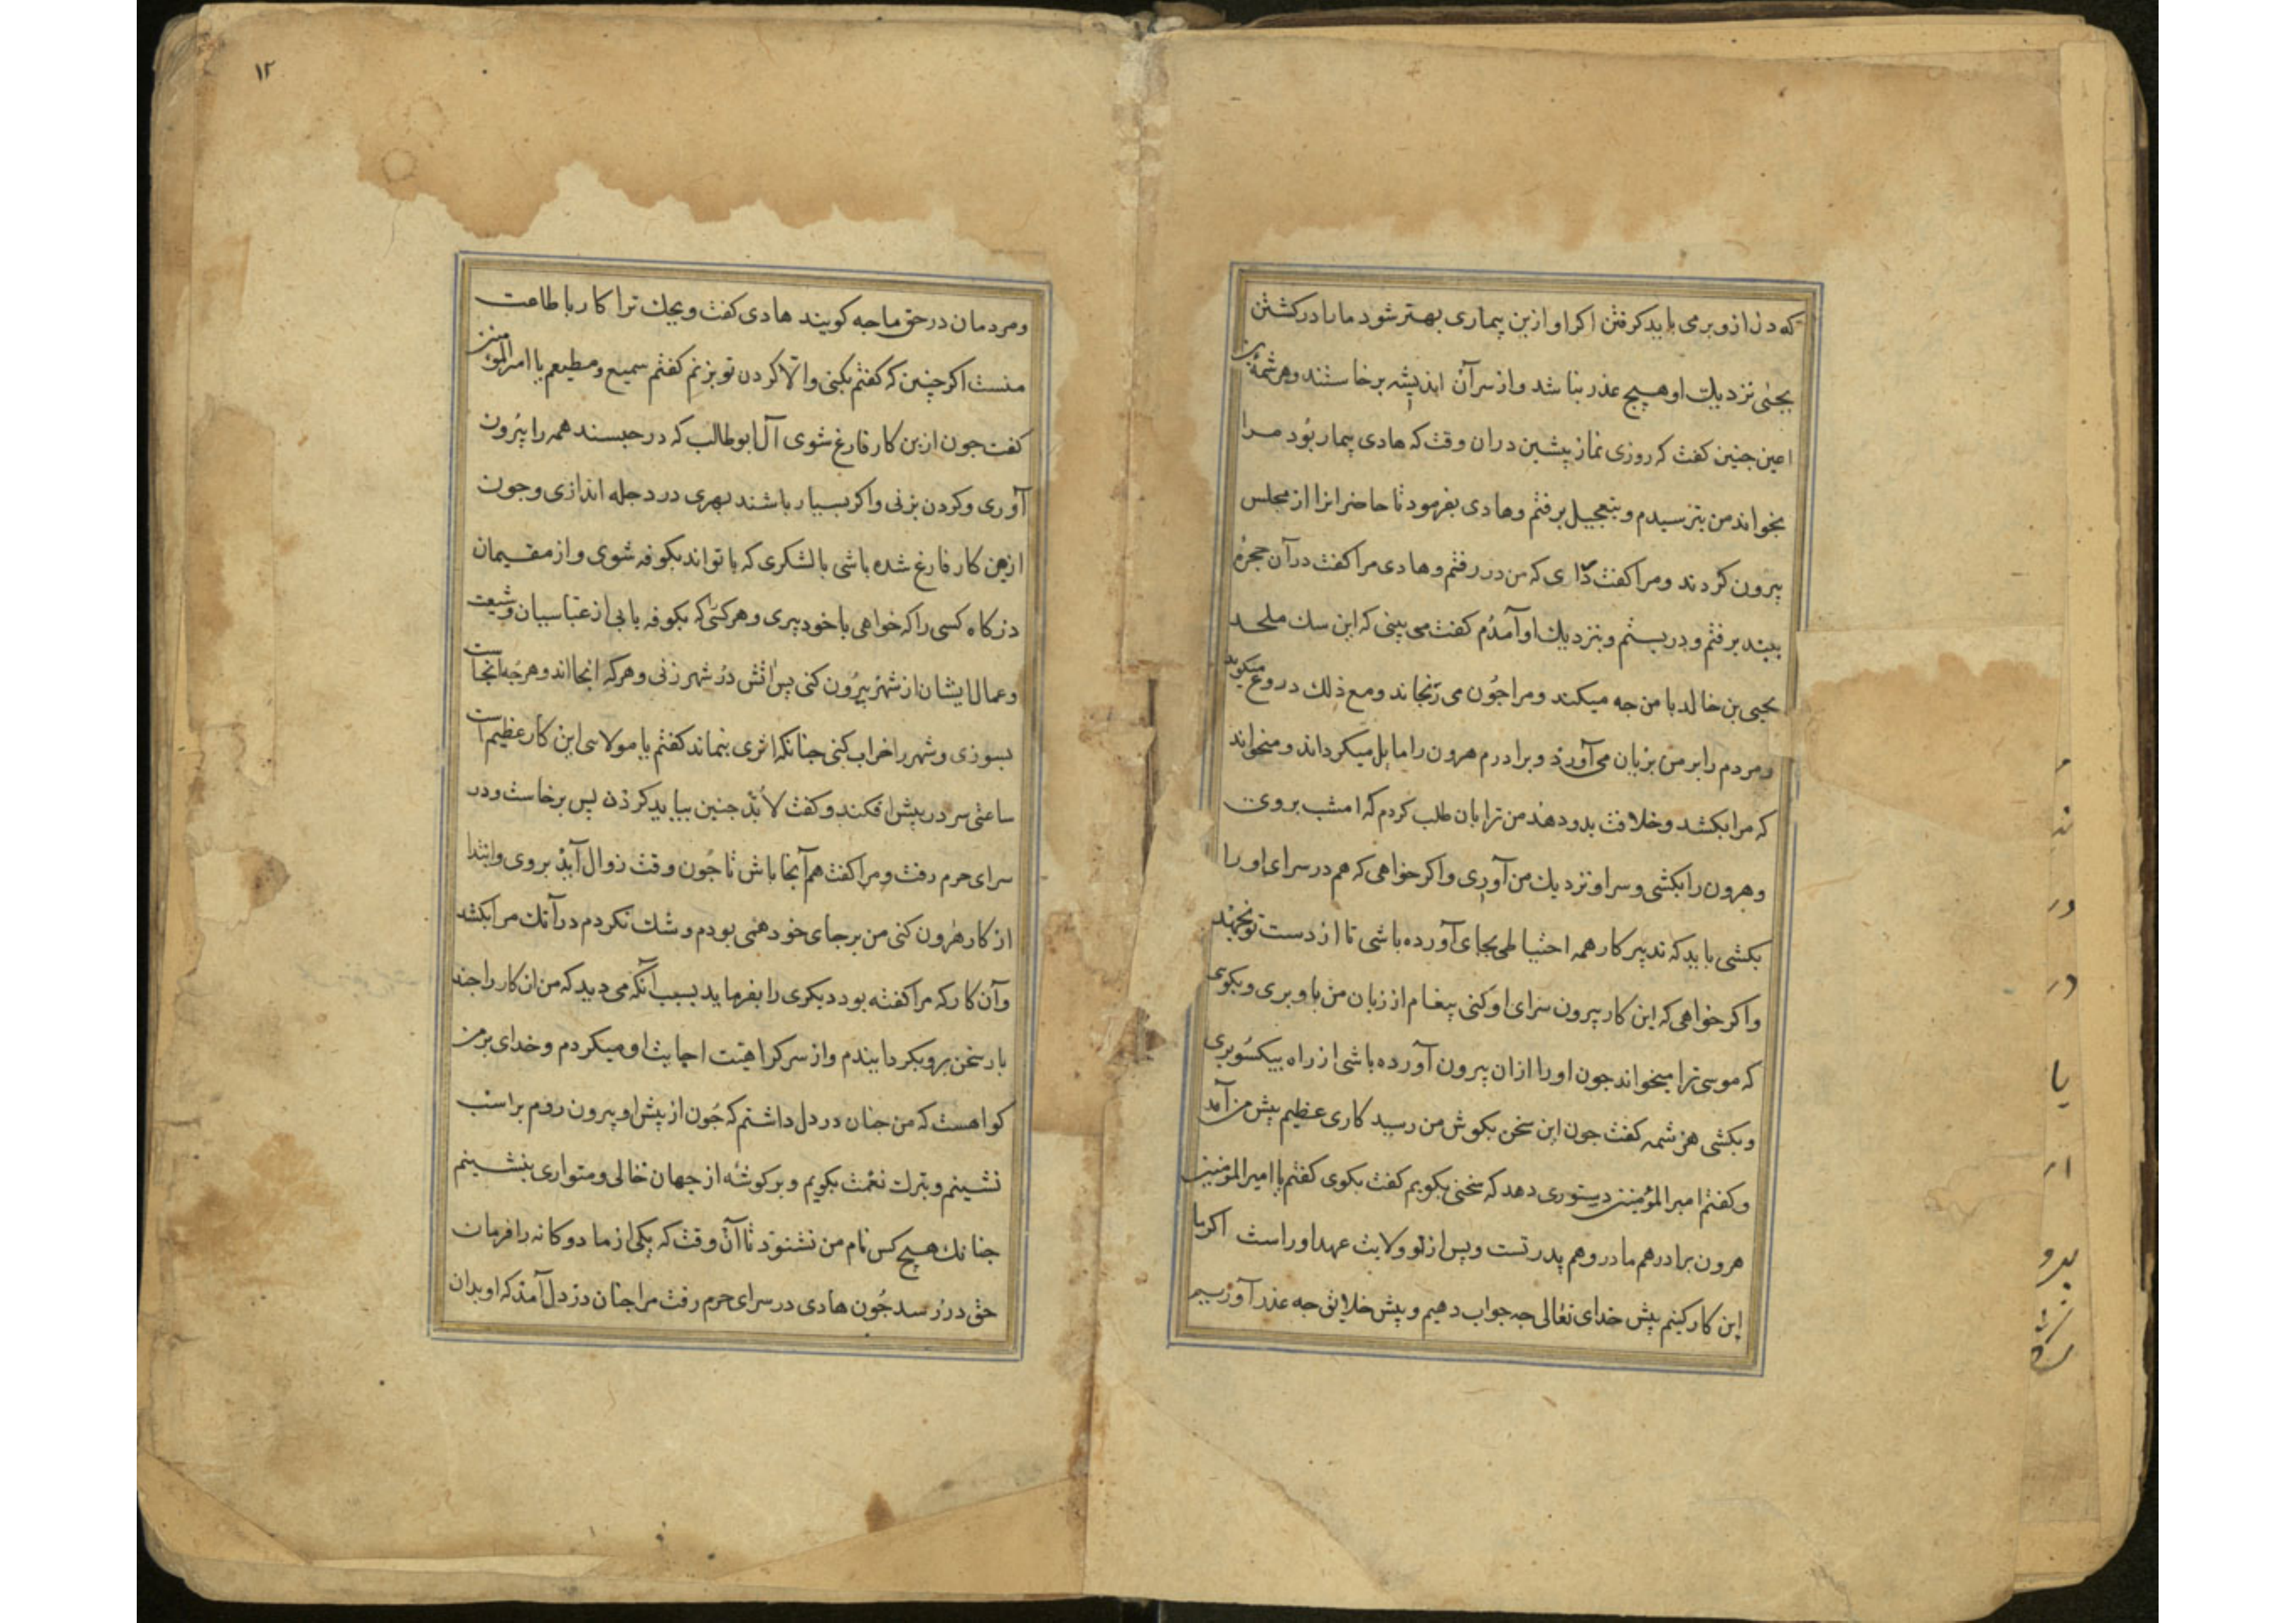 که دل ازو برمی باید کرفتن اکر او ازین بیماری بهتر شود ما را در کشتن
یحیی نزدیك او هیچ عذر نباشد و از سر آن اندیشه برخاستند و هرثمة بن
اعین جنین کفت که روزی نماز پیشین در ان وقت که هادی بیمار بود مرا
بخواند من بترسیدم و بتعجیل برفتم و هادی بفرمود تا حاضرانرا از مجلس
بیرون کردند و مرا کفت که من در رفتم و هادی مرا کفت در آن حجره
ببند برفتم و در ببستم و بنزدیك او آمدم کفت می بینی که این سك ملحد
یحیی بن خالد با من جه میکند و مرا جون می رنجاند و مع ذلك دروغ میکوید
و مردم را بر من بزیان می آورد و برادرم هرون را مایل میکرداند و میخواند
که مرا بکشد و خلافت بدو دهند من ترا بان طلب کردم که امشب بروی
و هرون را بکشی و سر او نزدیك من آوری و اکر خواهی که هم در سرای او را
بکشی باید که تدبیر کار همه احتیاطی بجای آورده باشی تا از دست تو نجهد
و اکر خواهی که این کار بیرون سرای او کنی پیغام از زبان من باو بری و بکوی
که موسی ترا میخواند جون او را ازان بیرون آورده باشی از راه بیکسو بری
و بکشی هرثمه کفت جون این سخن بکوش من رسید کاری عظیم پیش من آمد
و کفتم امیر المؤمنین دستوری دهد که سخنی بکویم کفت بکوی کفتم یا امیر المؤمنین
هرون برادر هم مادر و هم پدر تست و پس از تو ولایت عهد او راست اکر ما
این کار کنیم پیش خدای تعالی جه جواب دهیم و پیش خلایق جه عذر آوریم
۱۲
و مردمان در حق ما جه کویند هادی کفت ویحك ترا کار با طاعت
منست اکر چنین که کفتم بکنی و الا کردن تو بزنم کفتم سمیع و مطیعم یا امیر المؤمنین
کفت جون ازین کار فارغ شوی آل ابو طالب که در حبسند همه را بیرون
آوری و کردن بزنی و اکر بسیار باشند بهری در دجله اندازی و جون
ازین کار فارغ شده باشی با لشکری که با تواند بکوفه شوی و از مقیمان
درکاه کسی را که خواهی با خود ببری و هر کسی که بکوفه یابی از عباسیان و شیعت
و عمال ایشان از شهر بیرون کنی پس اتش در شهر زنی و هر که انجا اند و هرجه آنجاست
بسوزی و شهر را خراب کنی جنانکه اثری بنماند کفتم یا مولای این کار عظیم است
ساعتی سر در پیش افکند و کفت لابد جنین بباید کردن پس برخاست و در
سرای حرم رفت و مرا کفت هم آنجا باش تا جون وقت زوال آید بروی و ابتدا
از کار هرون کنی من بر جای خود همی بودم و شك نکردم در آنك مرا بکشد
و آن کار که مرا کفته بود دیکری را بفرماید بسبب آنکه می دید که من ان کار را جند
بار سخن برو بکردانیدم و از سر کراهیت اجابت او میکردم و خدای بر من
کواهست که من جنان در دل داشتم که جون از پیش او بیرون روم بر اسب
نشینم و بترك نعمت بکویم و بر کوشه از جهان خالی و متواری بنشینم
جنانك هیچ کس نام من نشنود تا آن وقت که یکی از ما دوکانه را فرمان
حق در رسد جون هادی در سرای حرم رفت مرا جنان در دل آمد که او بدان